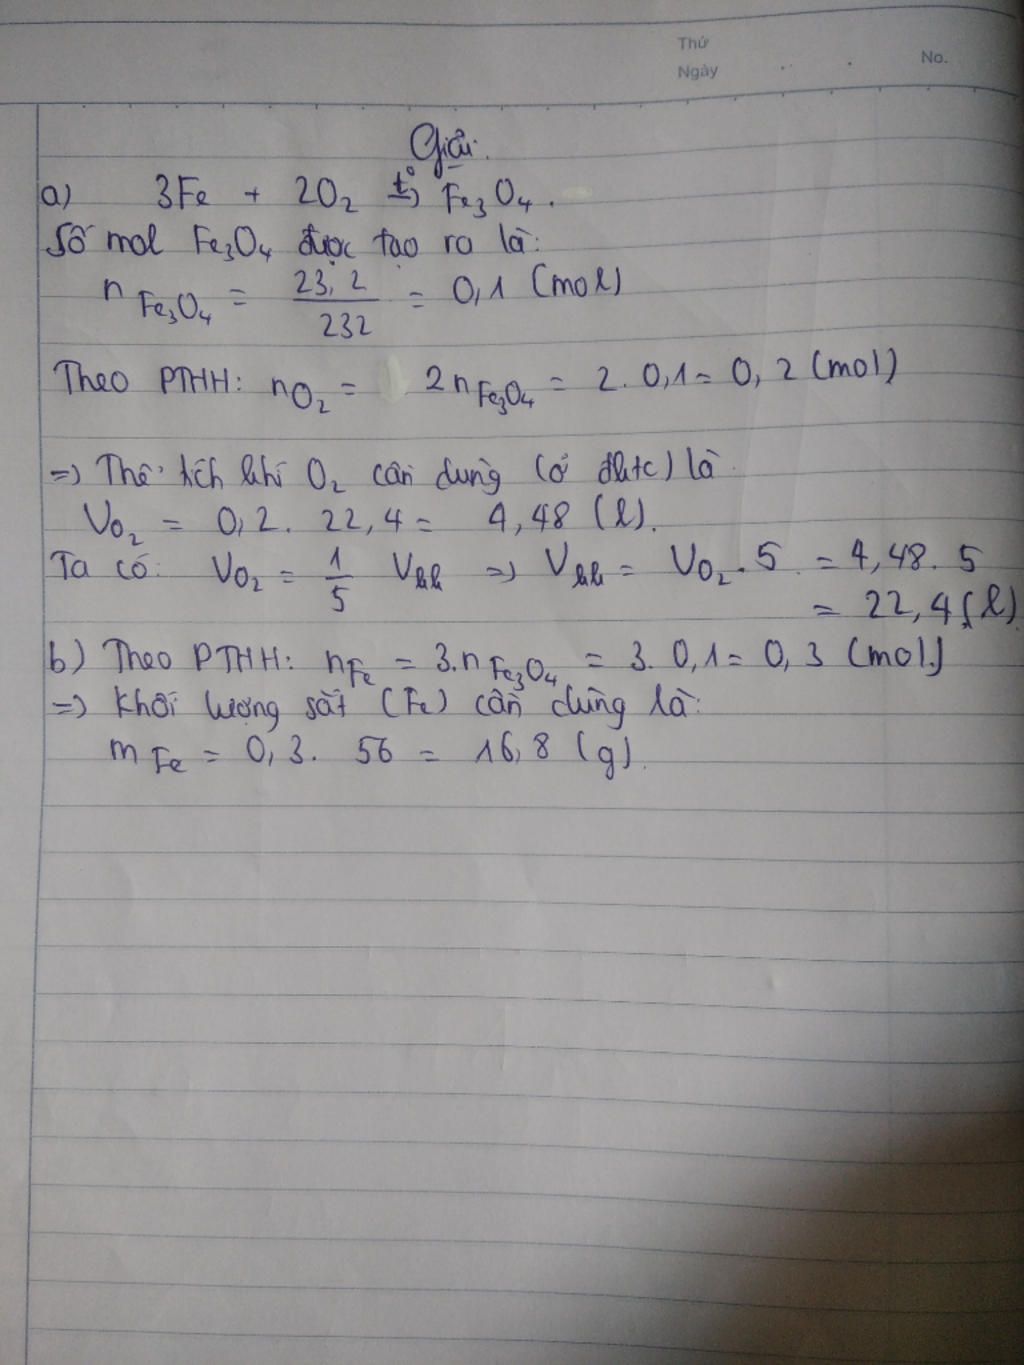 Thứ
Ngày
No.
Giải.
a) 3Fe + 2O₂ t°→ Fe₃O₄.
Số mol Fe₃O₄ được tạo ra là:
n Fe₃O₄ = 23,2/232 = 0,1 (mol)
Theo PTHH: nO₂ = 2nFe₃O₄ = 2.0,1 = 0,2 (mol)
=> Thể tích khí O₂ cần dùng (ở đktc) là
VO₂ = 0,2. 22,4 = 4,48 (l).
Ta có: VO₂ = 1/5 Vkk => Vkk = VO₂.5 = 4,48.5
= 22,4 (l)
b) Theo PTHH: nFe = 3.nFe₃O₄ = 3.0,1 = 0,3 (mol)
=> Khối lượng sắt (Fe) cần dùng là:
mFe = 0,3. 56 = 16,8 (g).